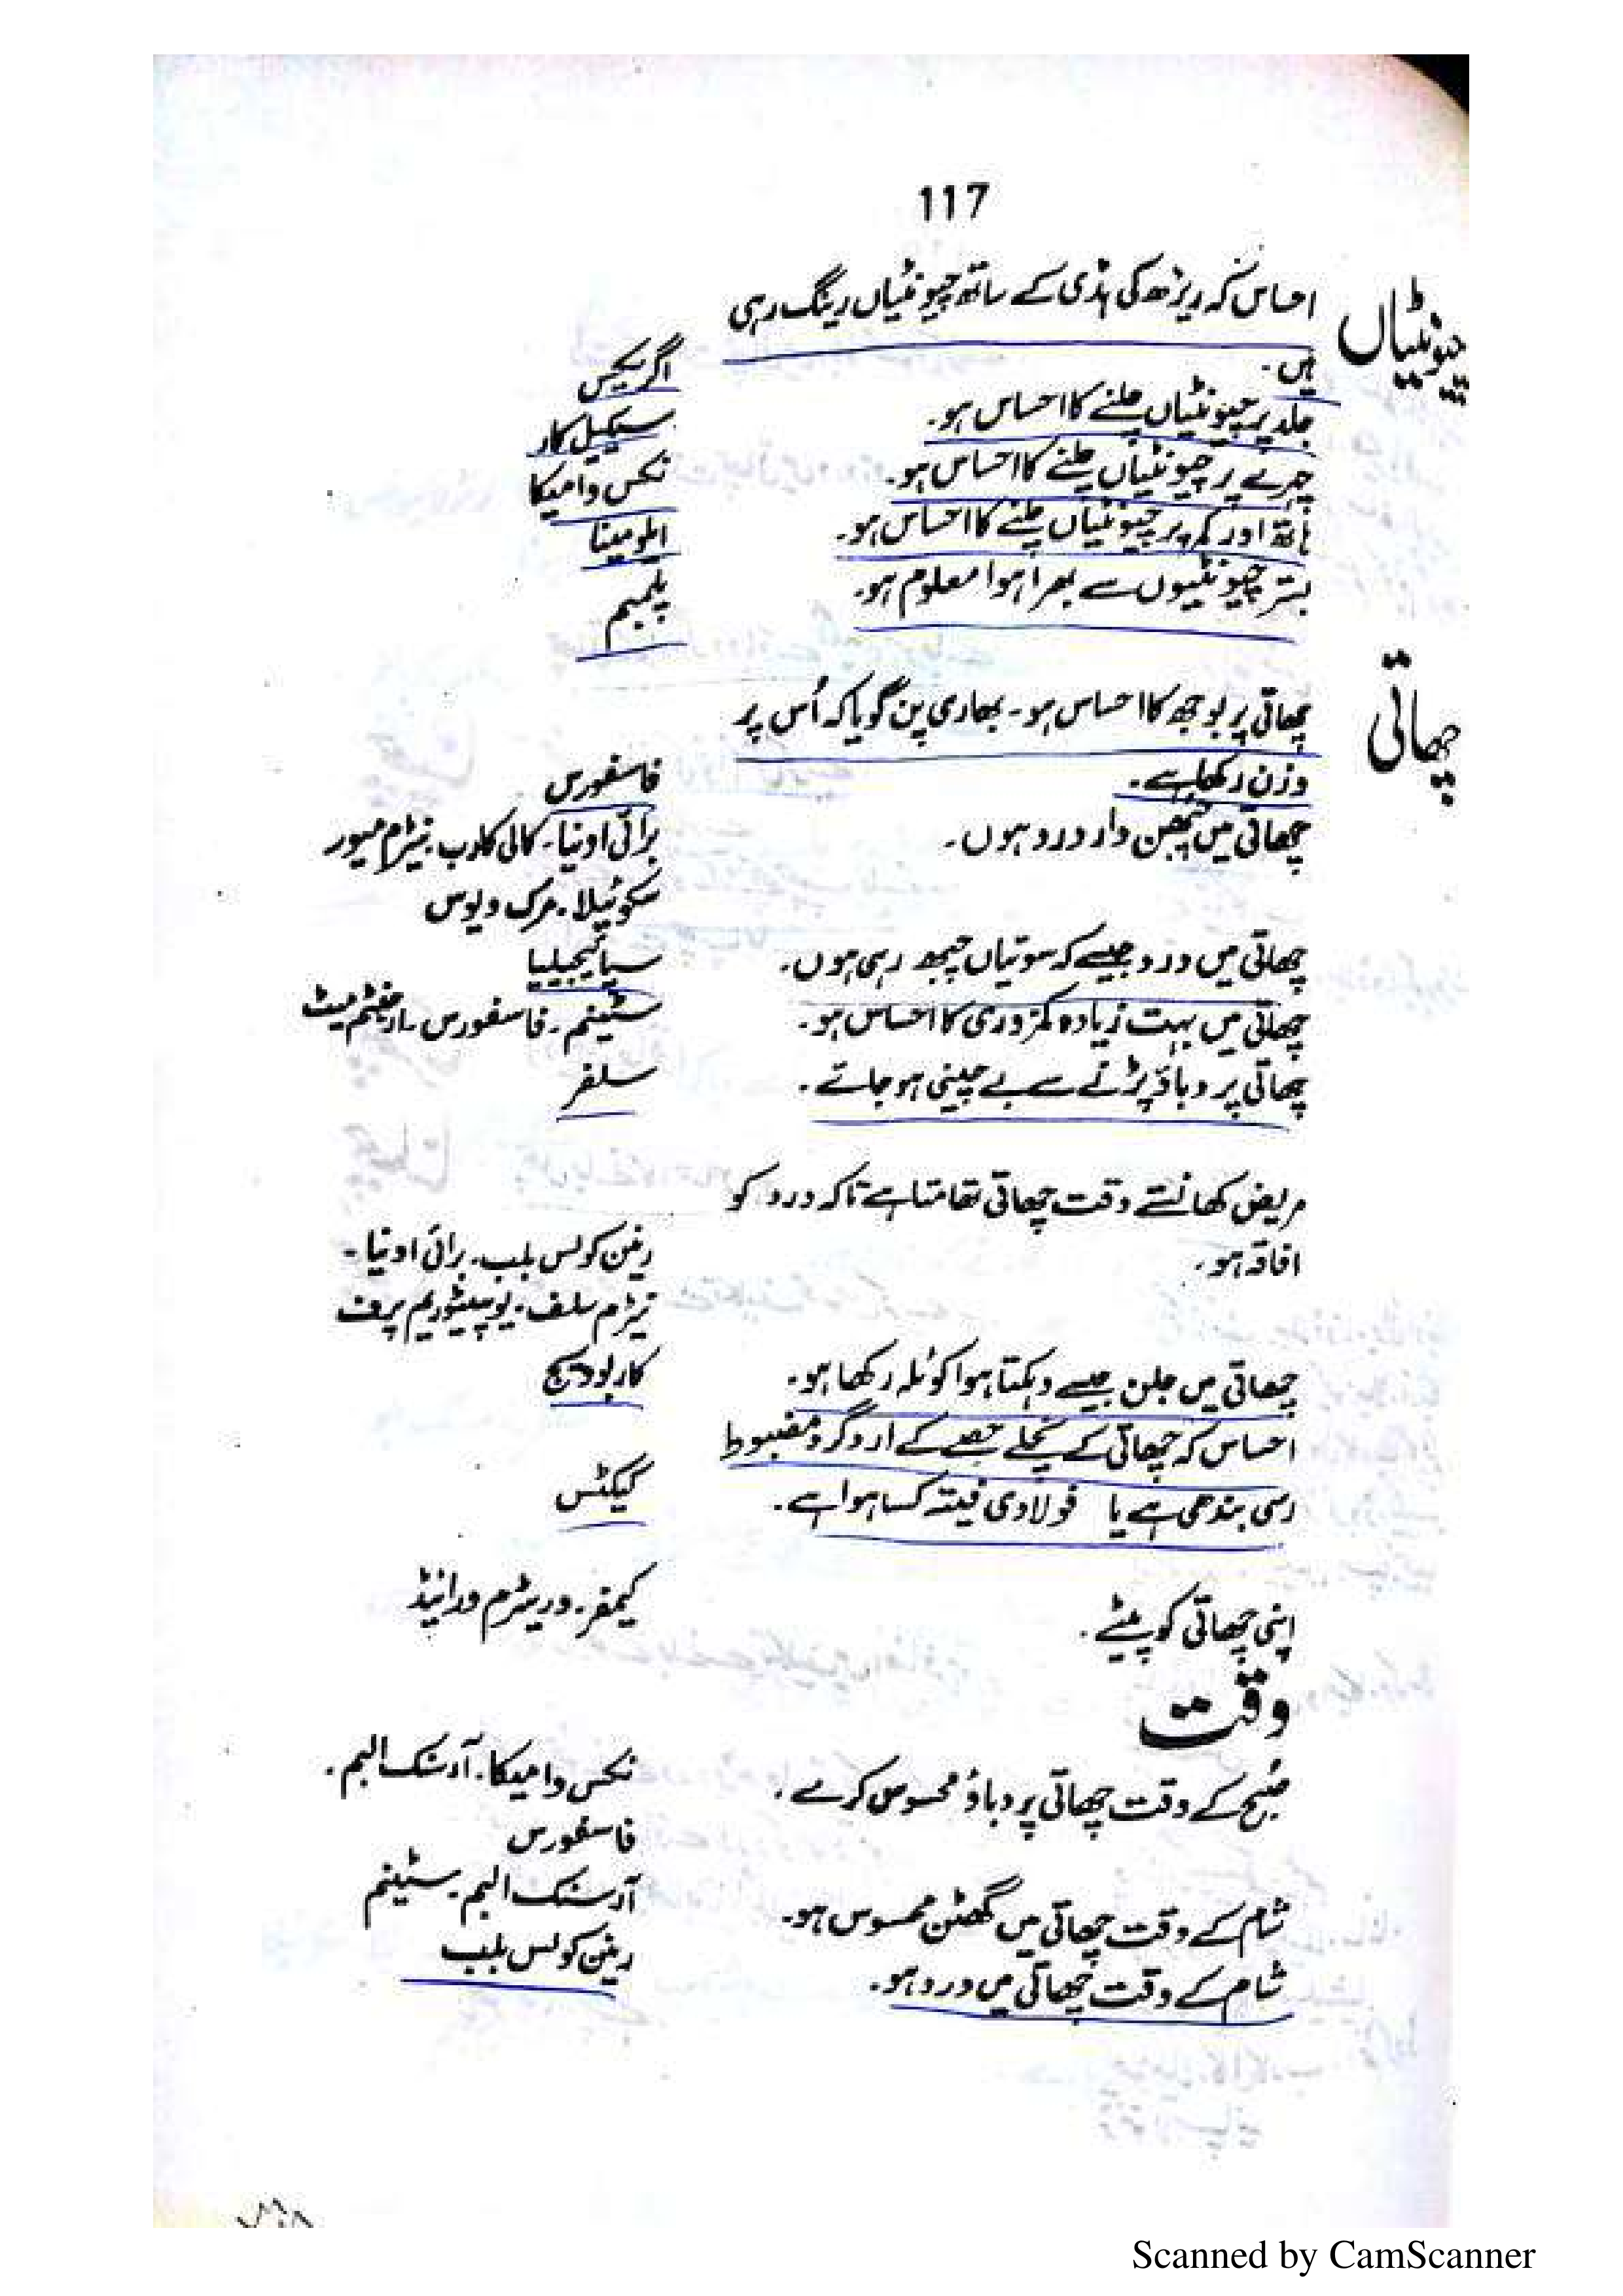 117
چیونٹیاں
احساس کہ ریڑھ کی ہڈی کے ساتھ چیونٹیاں رینگ رہی
ہیں۔ اگریکس
جلد پر چیونٹیاں چلنے کا احساس ہو۔ سیکیل کار
چہرے پر چیونٹیاں چلنے کا احساس ہو۔ نکس وامیکا
ہاتھ اور کمر پر چیونٹیاں چلنے کا احساس ہو۔ ایلومینا
بستر چیونٹیوں سے بھرا ہوا معلوم ہو۔ پلمبم
چھاتی
چھاتی پر بوجھ کا احساس ہو۔ بھاری پن گویا کہ اُس پر
وزن رکھا ہے۔ فاسفورس
چھاتی میں چبھن دار درد ہوں۔ برائی اونیا۔ کالی کارب۔ نیٹرم میور
سکوئیلا۔ مرک ویوس
چھاتی میں درد جیسے کہ سوئیاں چبھ رہی ہوں۔ سپائیجیلیا
چھاتی میں بہت زیادہ کمزوری کا احساس ہو۔ سٹینم۔ فاسفورس۔ ارجنٹم میٹ
چھاتی پر دباؤ پڑنے سے بے چینی ہو جائے۔ سلفر
مریض کھانستے وقت چھاتی تھامتا ہے تاکہ درد کو
افاقہ ہو۔ رینن کولس بلب۔ برائی اونیا۔
نیٹرم سلف۔ یوپیٹوریم پرف
چھاتی میں جلن جیسے دہکتا ہوا کوئلہ رکھا ہو۔ کاربوویج
احساس کہ چھاتی کے نچلے حصے کے ارد گرد مضبوط
رسی بندھی ہے یا فولادی فیتہ کسا ہوا ہے۔ کیکٹس
اپنی چھاتی کو پیٹے۔ کیمفر۔ وریٹرم ورائیڈ
وقت
صبح کے وقت چھاتی پر دباؤ محسوس کرے۔ نکس وامیکا۔ آرسنک البم۔
فاسفورس
شام کے وقت چھاتی میں گھٹن محسوس ہو۔ آرسنک البم۔ سٹینم
شام کے وقت چھاتی میں درد ہو۔ رینن کولس بلب
Scanned by CamScanner